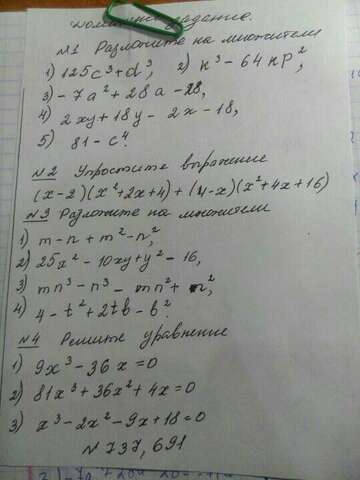 Домашнее задание.
№1 Разложите на множители
1) 125c³+d³, 2) k³ - 64kp²,
3) -7a² + 28a - 28,
4) 2xy + 18y - 2x - 18,
5) 81 - c⁴.
№2 Упростите выражение
(x-2)(x²+2x+4) + (4-x)(x²+4x+16)
№3 Разложите на множители
1) m - n + m² - n²,
2) 25x² - 10xy + y² - 16,
3) mn³ - n³ - mn² + n²,
4) 4 - t² + 2tb - b².
№4 Решите уравнение
1) 9x³ - 36x = 0
2) 81x³ + 36x² + 4x = 0
3) x³ - 2x² - 9x + 18 = 0
№737, 691